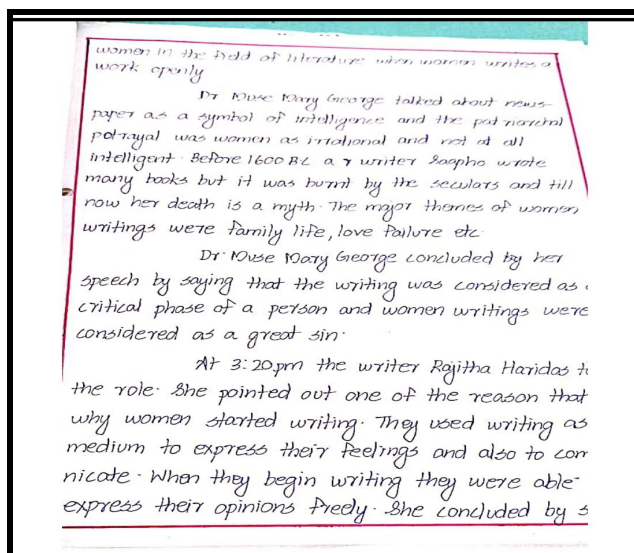 women in the field of literature when women writes a
work openly
Dr Muse Mary George talked about news-
paper as a symbol of intelligence and the patriarchal
potrayal was women as irrational and not at all
intelligent. Before 1600 BC a writer Sappho wrote
many books but it was burnt by the seculars and till
now her death is a myth. The major themes of women
writings were family life, love failure etc.
Dr. Muse Mary George concluded by her
speech by saying that the writing was considered as
critical phase of a person and women writings were
considered as a great sin.
At 3:20pm the writer Rajitha Haridas t
the role. She pointed out one of the reason that
why women started writing. They used writing as
medium to express their feelings and also to com
nicate. When they begin writing they were able
express their opinions freely. She concluded by s